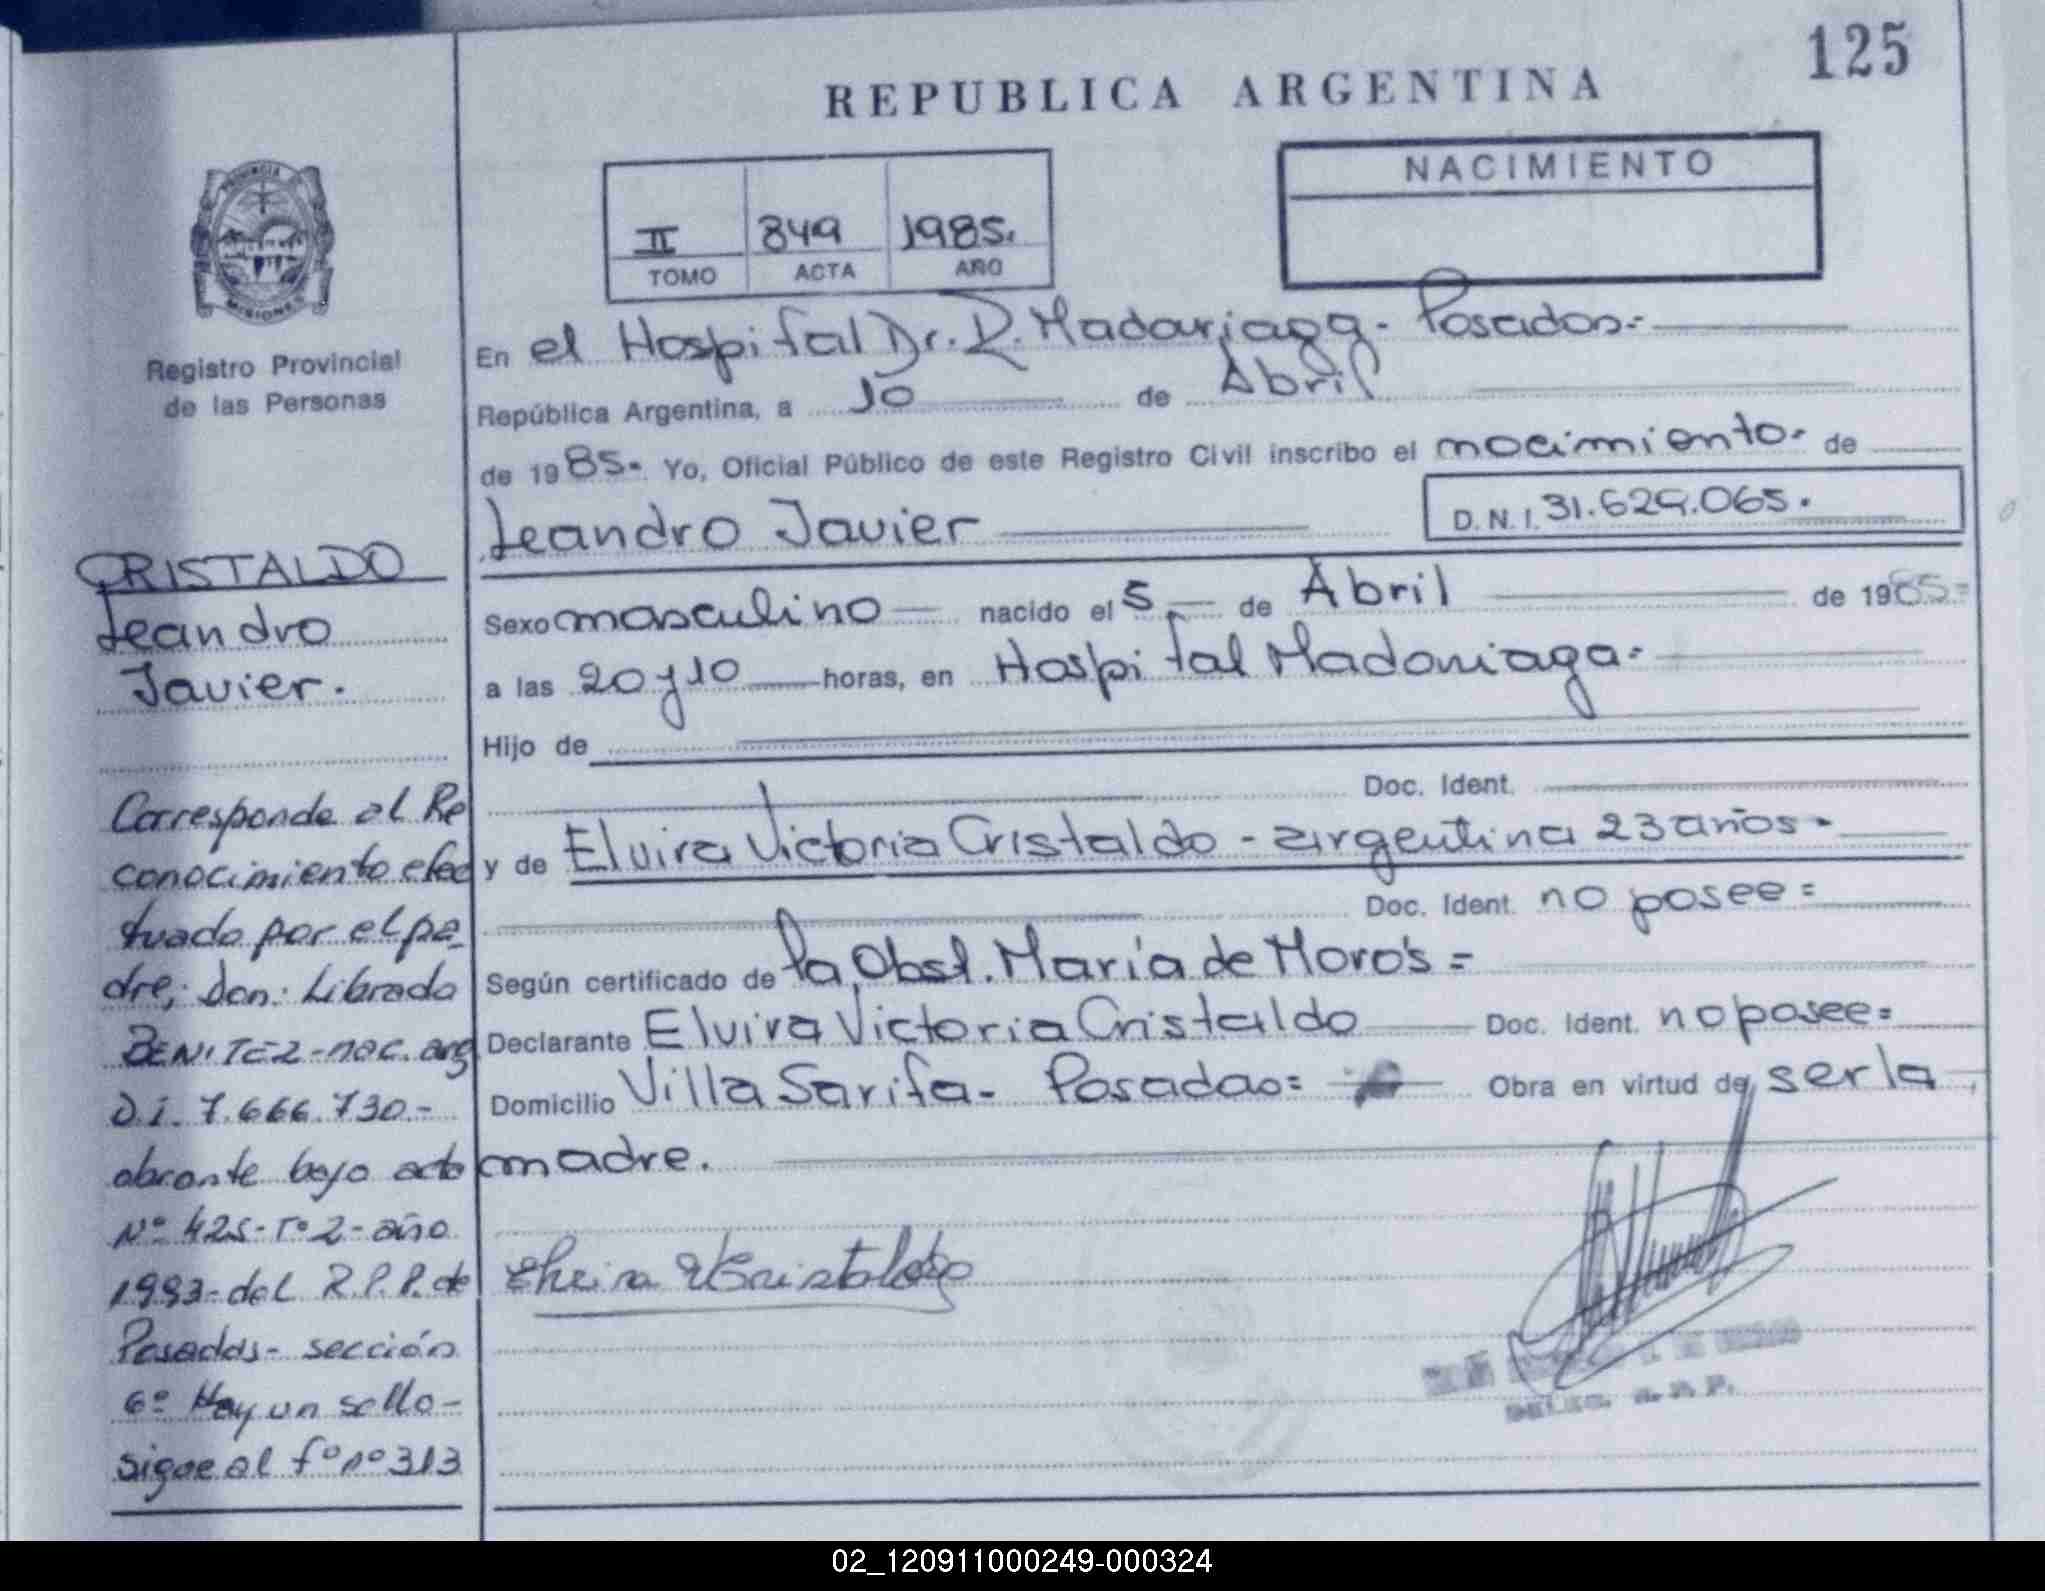 125
REPUBLICA ARGENTINA
NACIMIENTO
II 849 1985.
TOMO ACTA AÑO
PROVINCIA
MISIONES
Registro Provincial
de las Personas
En el Hospital Dr. R. Madariaga - Posadas=
República Argentina, a 10 de Abril
de 1985= Yo, Oficial Público de este Registro Civil inscribo el nacimiento- de
Leandro Javier D.N.I. 31.629.065.
Sexo masculino nacido el 5 de Abril de 1985=
a las 20 y 10 horas, en Hospital Madariaga-
Hijo de
Doc. Ident.
y de Elvira Victoria Cristaldo - argentina 23 años-
Doc. Ident. no posee=
Según certificado de la Obst. María de Moro's=
Declarante Elvira Victoria Cristaldo Doc. Ident. no posee=
Domicilio Villa Sarita- Posadas= Obra en virtud de ser la
madre.
CRISTALDO
Leandro
Javier.
Corresponde al Re
conocimiento efec
tuado por el pa-
dre; Don: Librado
BENITEZ-nac. arg
D.I. 7.666.730.-
obrante bajo acta
Nº 425-Tº2-año
1993-del R.P.P. de
Posadas- sección
6º Hay un sello-
sigue al fº nº 313
02_120911000249-000324